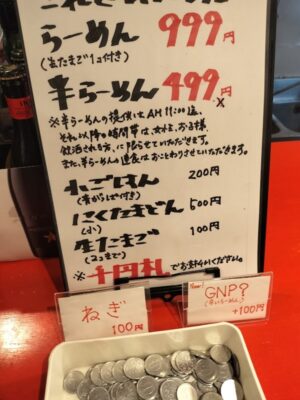 らーめん 999円
(生たまご1コ付き)
半らーめん 499円
※半らーめんの提供はAM11:00迄、
それ以降の時間帯は お子様、
飲酒される方、に限らせていただきます。
また、半らーめんの連食はおことわりさせていただきます。
ごはん 200円
にくたまどん 500円
(小)
生たまご 100円
(2コまで)
※千円札でお支払いください。
ねぎ
100円
New!
GNP?
+100円